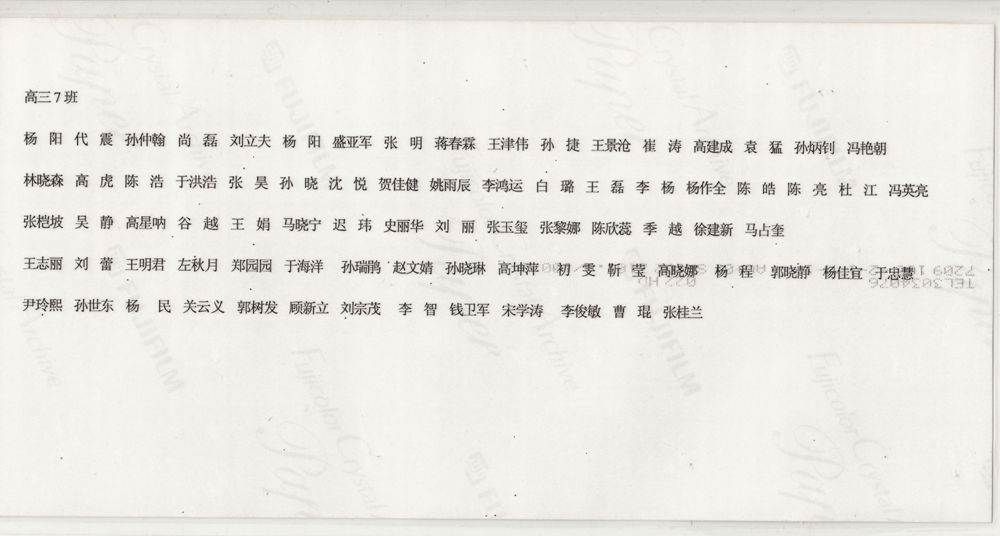 高三7班
杨 阳 代 震 孙仲翰 尚 磊 刘立夫 杨 阳 盛亚军 张 明 蒋春霖 王津伟 孙 捷 王景沧 崔 涛 高建成 袁 猛 孙炳钊 冯艳朝
林晓森 高 虎 陈 浩 于洪浩 张 昊 孙 晓 沈 悦 贺佳健 姚雨辰 李鸿运 白 璐 王 磊 李 杨 杨作全 陈 皓 陈 亮 杜 江 冯英亮
张桤坡 吴 静 高星呐 谷 越 王 娟 马晓宁 迟 玮 史丽华 刘 丽 张玉玺 张黎娜 陈欣蕊 季 越 徐建新 马占奎
王志丽 刘 蕾 王明君 左秋月 郑园园 于海洋 孙瑞鹃 赵文婧 孙晓琳 高坤萍 初 雯 靳 莹 高晓娜 杨 程 郭晓静 杨佳宜 于忠慧
尹玲熙 孙世东 杨 民 关云义 郭树发 顾新立 刘宗茂 李 智 钱卫军 宋学涛 李俊敏 曹 琨 张桂兰
FUJIFILM
Fujicolor Crystal
Archive
TEL3034026